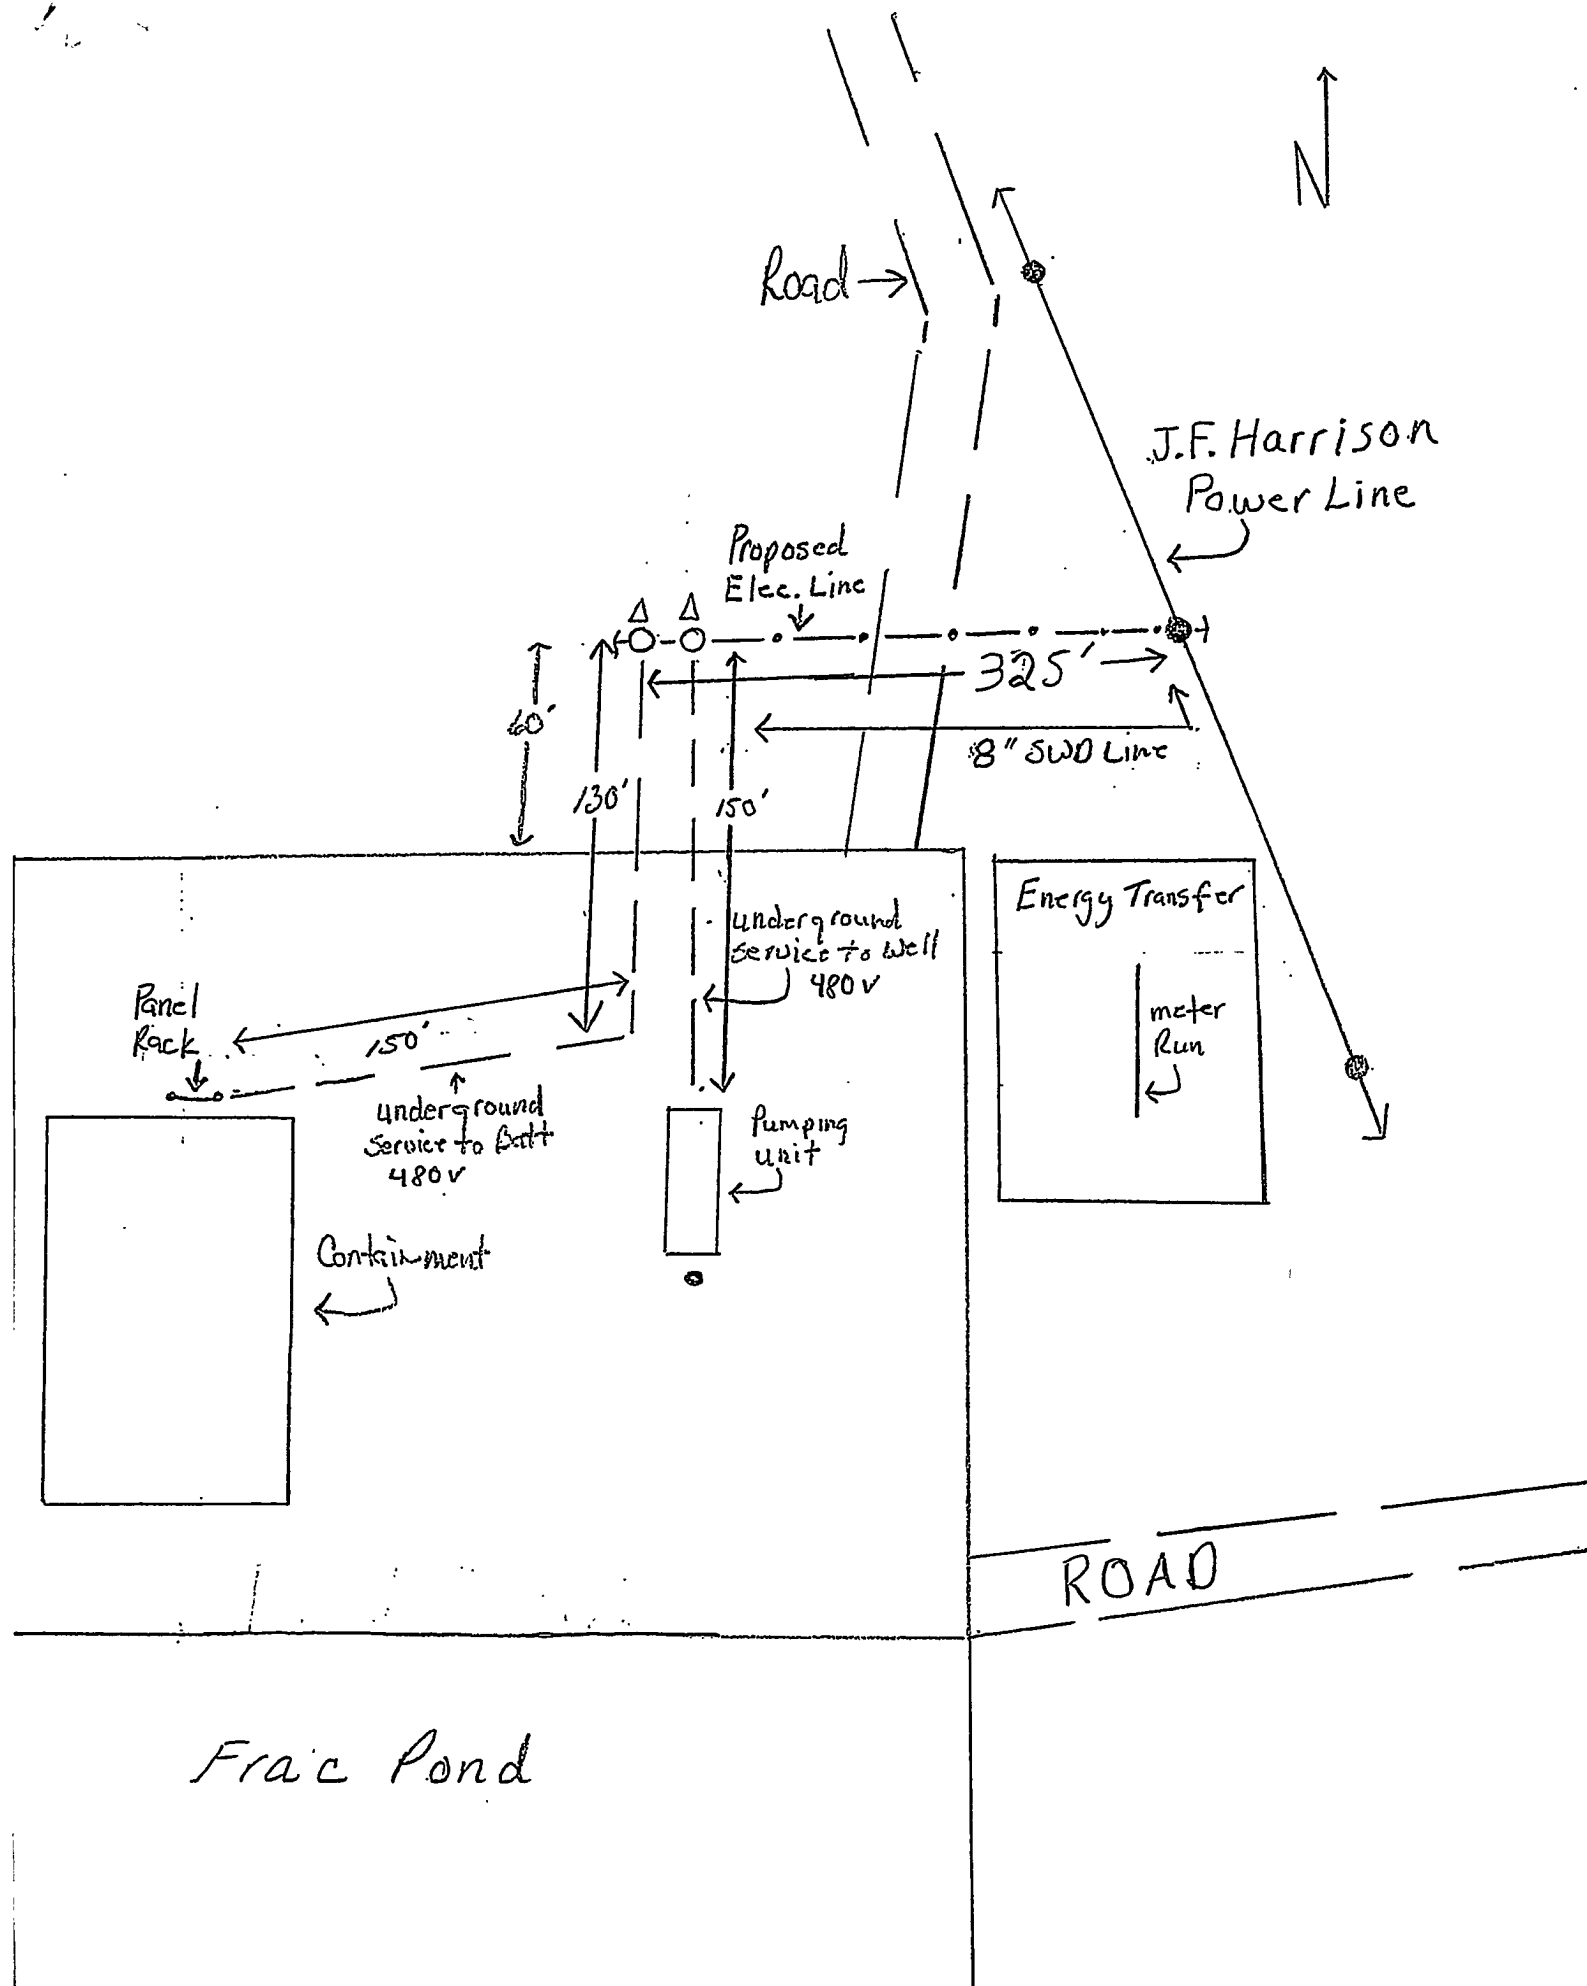 N
Road
J.F. Harrison
Power Line
Proposed
Elec. Line
325'
60'
8" SWD Line
130'
150'
Energy Transfer
underground
service to Well
480 v
Panel
Rack
150'
meter
Run
underground
service to Batt
480 v
Pumping
unit
Containment
ROAD
Frac Pond